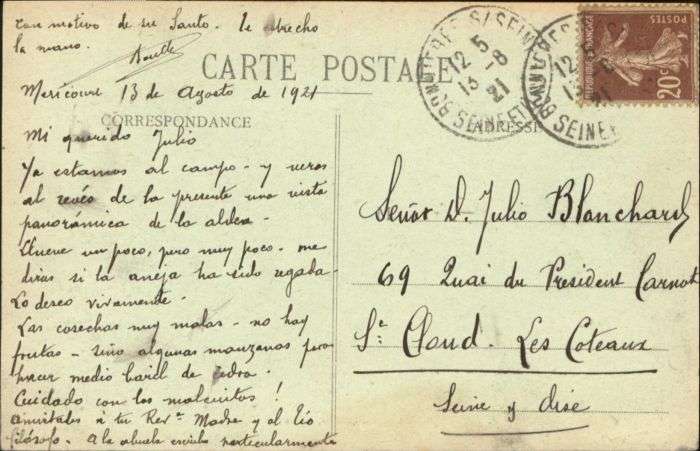 con motivo de su Santo. Te estrecho
la mano.
CARTE POSTALE
Mericourt 13 de Agosto de 1921
CORRESPONDANCE
ADRESSE
Mi querido Julio
Ya estamos al campo - y veras
al revés de la presente una vista
panorámica de la aldea -
Llueve un poco, pero muy poco - me
diras si la aneja ha sido regada -
Lo deseo vivamente -
Las cosechas muy malas - no hay
frutas - sino algunas manzanas para
hacer medio baril de cidra.
Cuidado con los malcuitos!
Amistades à tu Revª Madre y al tío
filósofo. A la abuela escribo particularmente
Señor D. Julio Blanchard
69 Quai du President Carnot
St. Cloud. Les Coteaux
Seine y Oise
BONNIERES S/SEINE
12 5
13 -8
21
SEINE ET
POSTES
20c